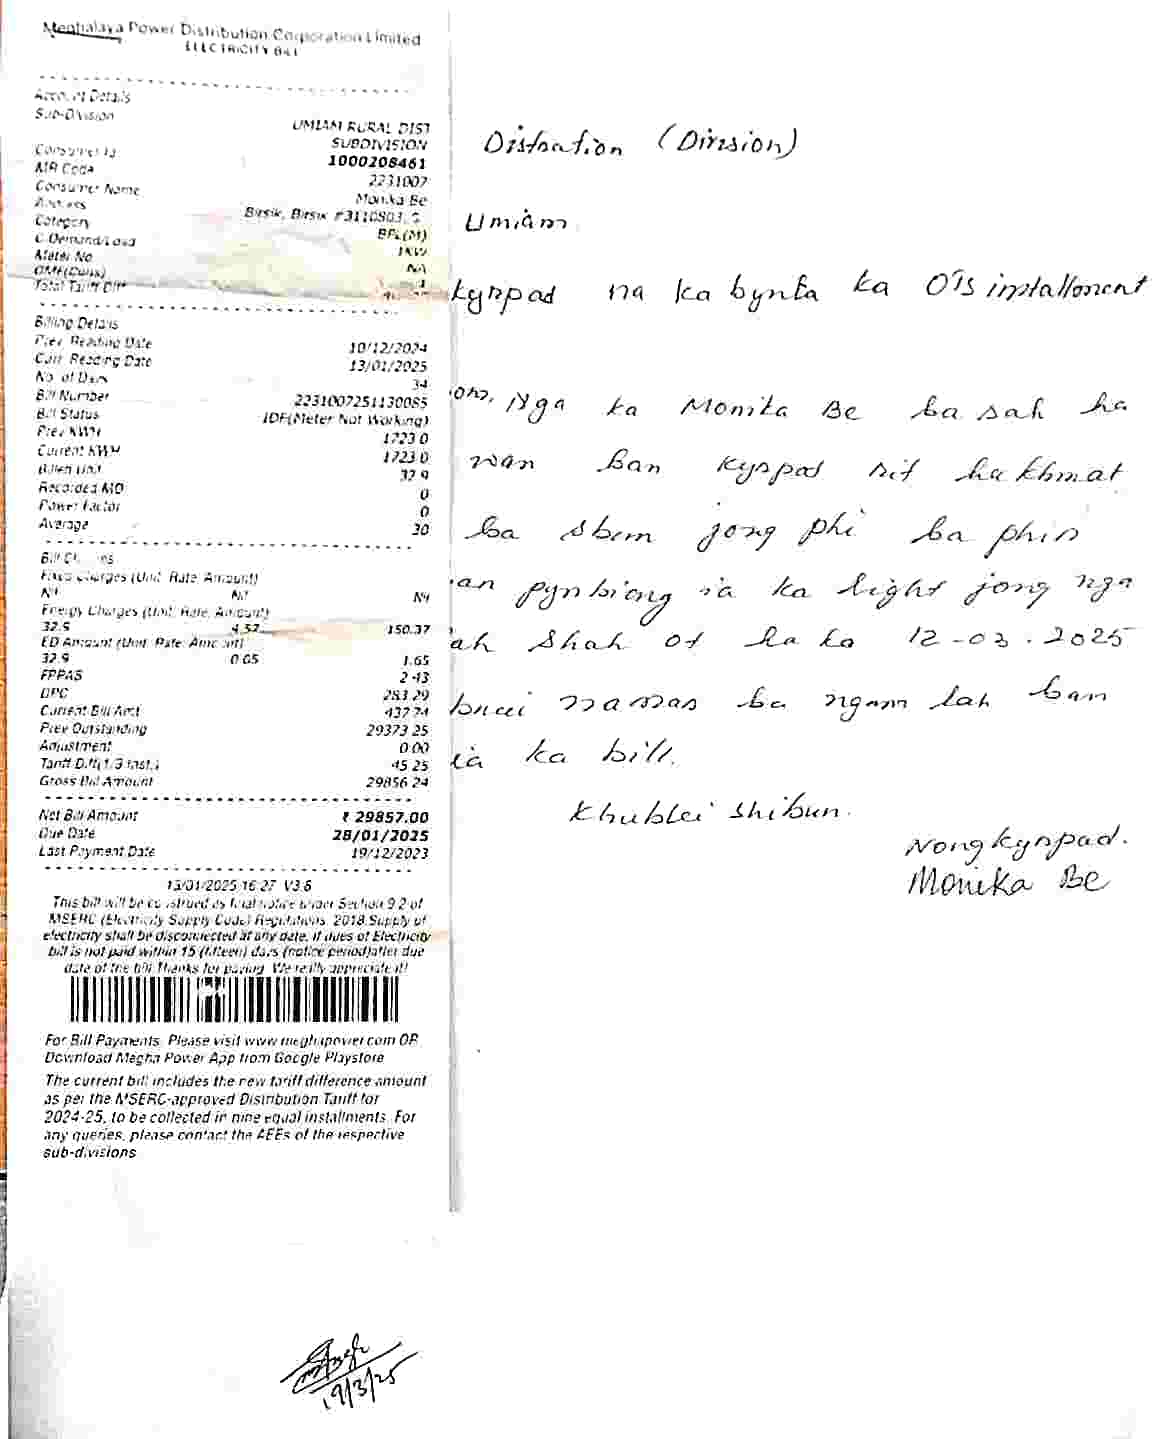 Meghalaya Power Distribution Corporation Limited
ELECTRICITY Bill
Account Details
Sub-Division UMIAM RURAL DIST
SUBDIVISION
Consumer Id 1000208461
MR Code 2231007
Consumer Name Monika Be
Address Birsik, Birsik #3110803,
Category BPL(M)
C.Demand/Load 1KW
Meter No NA
OMF(Cons)
Total Tariff Diff
Billing Details
Prev. Reading Date 10/12/2024
Curr. Reading Date 13/01/2025
No. of Days 34
Bill Number 2231007251130085
Bill Status IDF(Meter Not Working)
Prev KWH 1723.0
Current KWH 1723.0
Billed Unit 32.9
Recorded MD 0
Power Factor 0
Average 30
Fixed Charges (Unit, Rate, Amount)
Nil Nil Nil
Energy Charges (Unit, Rate, Amount)
32.9 4.57 150.37
ED Amount (Unit, Rate, Amount)
32.9 0.05 1.65
FPPAS 2.43
DPC 283.29
Current Bill Amt 437.74
Prev Outstanding 29373.25
Adjustment 0.00
Tariff Diff(1/9 Inst.) 45.25
Gross Bill Amount 29856.24
Net Bill Amount ₹ 29857.00
Due Date 28/01/2025
Last Payment Date 19/12/2023
13/01/2025 16:27 V3.6
This bill will be construed as final notice under Section 9.2 of
MSERC (Electricity Supply Code) Regulations, 2018.Supply of
electricity shall be disconnected at any date, if dues of Electricity
bill is not paid within 15 (fifteen) days (notice period)after due
date of the bill.Thanks for paying. We really appreciate it!
For Bill Payments, Please visit www.meghapower.com OR
Download Megha Power App from Google Playstore
The current bill includes the new tariff difference amount
as per the MSERC-approved Distribution Tariff for
2024-25, to be collected in nine equal installments. For
any queries, please contact the AEEs of the respective
sub-divisions
Distration (Division)
Umiam
kyrpad na ka bynta ka OTS installonent
Nga ka Monika Be ba sah ha
wan ban kyrpad rit hakhmat
ba sbem jong phi ba phin
pynbiang ia ka light jong nga
lah shah ot ha ka 12-03.2025
bnai namar ba ngam lah ban
ia ka bill.
Khublei shibun.
Nongkyrpad.
Monika Be
19/3/25